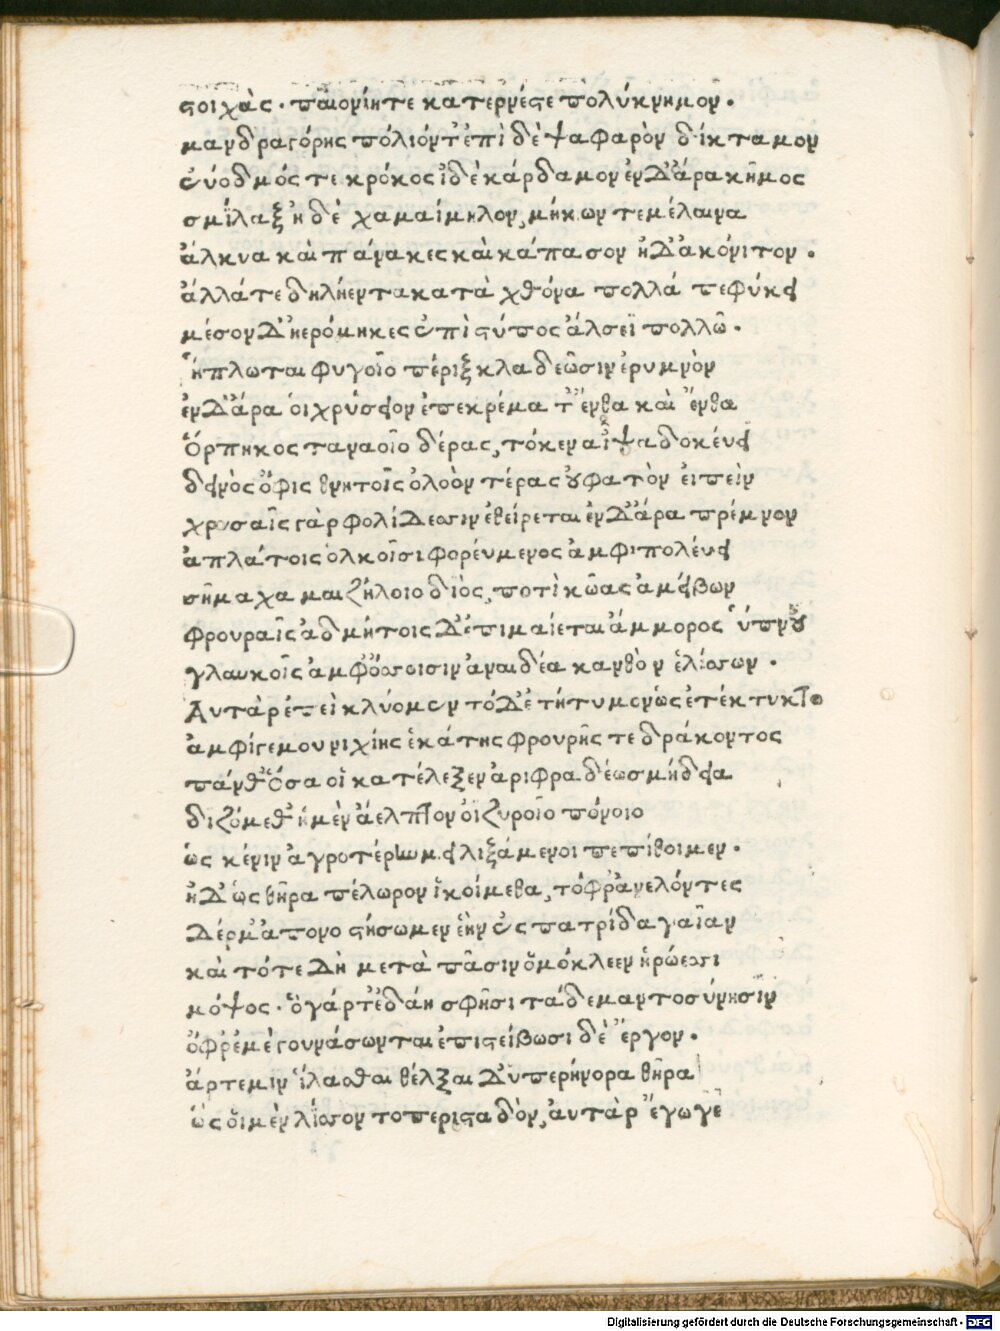 ϛοιχὰς · παιονίη τε κατερνέϛε πολύκνημον .
μανδραγόρης πόλιόντ' ἐπὶ δὲ ψαφαρὸν δίκταμον
ἐύοδμός τε κρόκος ἰδὲ κάρδαμον ἐν δ' ἄρα κῆμος
σμῖλαξ ἠδὲ χαμαίμηλον, μήκων τε μέλαινα
ἀλκνα καὶ πάνακες καὶ κάπασον ἠδ' ἀκόνιτον .
ἀλλά τε δηλήεντα κατὰ χθόνα πολλὰ πεφύκει
μέσον δ' ἠερόμηκες ἐπὶ ϛύπος ἄλσεϊ πολλῶ .
ἥπλωται φυγοῖο πέριξ κλαδεῶσιν ἐρυμνὸν
ἐν δ' ἄρα οἱ χρύσειον ἐπεκρέματ' ἔνθα καὶ ἔνθα
ὅρπηκος ταναοῖο δέρας, τό κεν αἶψα δοκένει
δεινὸς ὄφις θνητοῖς ὀλοὸν τέρας οὐ φατὸν εἰπεῖν
χρυσαῖς γὰρ φολίδεσιν ἐθείρεται ἐν δ' ἄρα πρέμνον
ἀπλάτοις ὁλκοῖσι φορεύμενος ἀμφιπολένει
σῆμα χαμαιζήλοιο διὸς, ποτὶ κῶας ἀμείβων
φρουραῖς ἀδμήτοις δ' ἐπιμαίεται ἄμμορος ὕπνου
γλαυκοῖς ἀμφ' ὄσσοισιν ἀναιδέα κανθὸν ἑλίσσων .
Αὐτὰρ ἐπεὶ κλύομεν τό δ' ἐτήτυμον ὡς ἐτέκτυκτο
ἀμφί γε μουνιχίης ἑκάτης φρουρῆς τε δράκοντος
πάνθ' ὅσα οἷ κατέλεξεν ἀριφραδέως μήδεια
διζόμεθ' ἡμὲν ἄελπτον ὀϊζυροῖο πόνοιο
ὡς κένιν ἀγροτέρην μειλιξάμενοι πεπίθοιμεν .
ἠδ' ὡς θῆρα πέλωρον ἱκοίμεθα, τόφρ' ἀνελόντες
δέρμ' ἀπονοϛήσωμεν ἑὴν ἐς πατρίδα γαῖαν
καὶ τότε δὴ μετὰ πᾶσιν ὁμόκλεεν ἡρώεσσι
μόψος · ὁ γάρ τ' ἐδάη σφῆσι τάδε μαντοσύνησιν
ὄφρ' ἐμὲ γουνάσωνται ἐπιϛείβωσι δὲ ἔργον .
ἄρτεμιν ἱλᾶσθαι θέλξαι δ' ὑπερήνορα θῆρα
ὡς οἱ μὲν λίσσοντο περιϛαδὸν, αὐτὰρ ἔγωγε